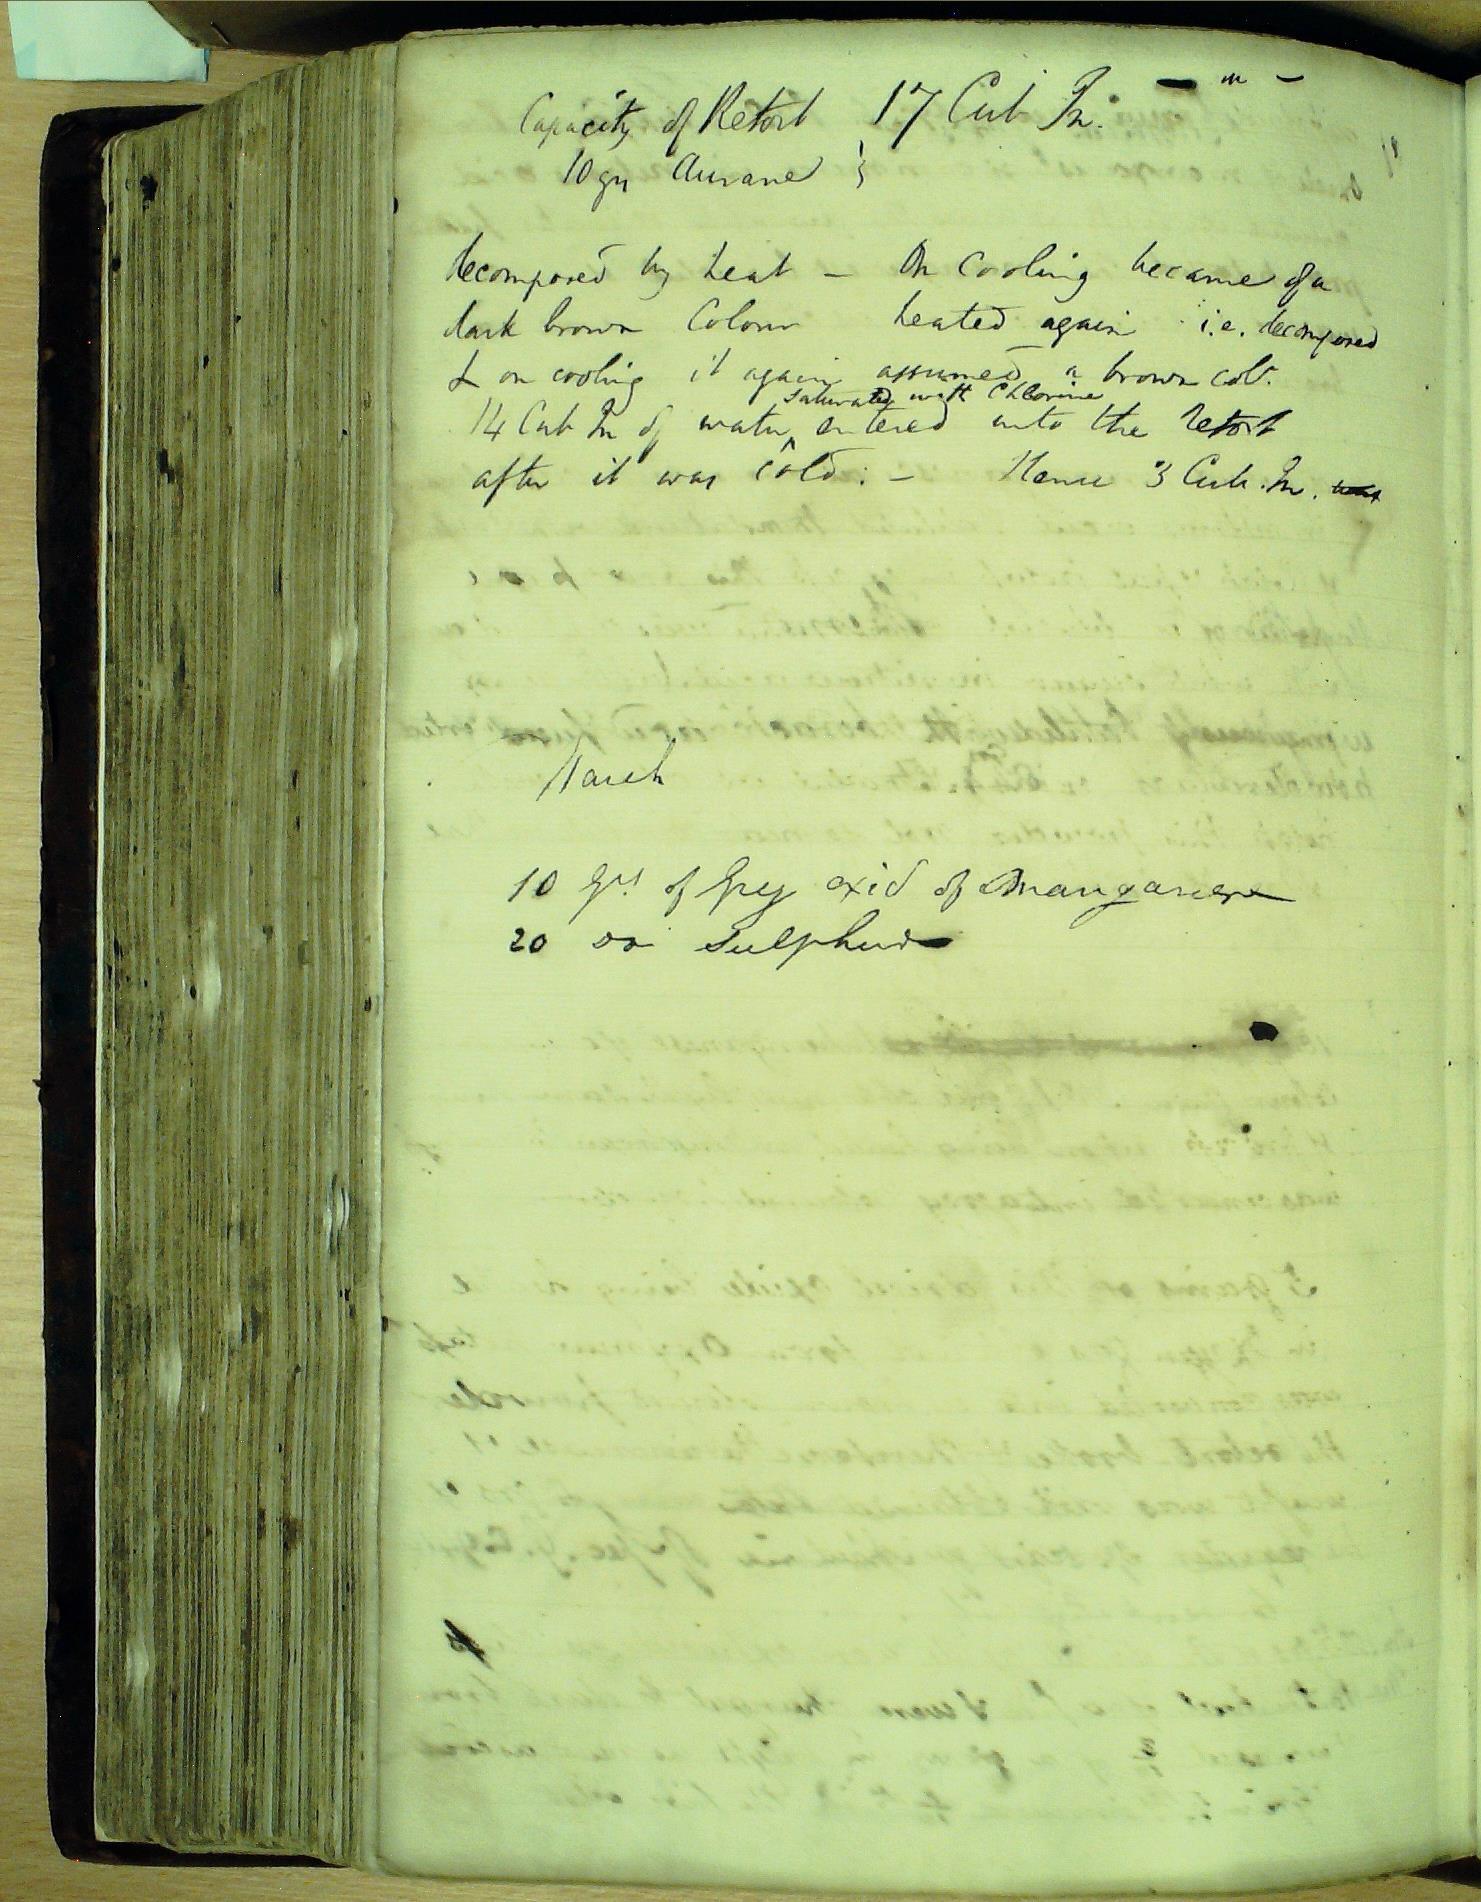 Capacity of Retort 17 Cub In.
10 grs Aurane }
decomposed by heat – On Cooling became of a
dark brown Colour heated again i.e. decomposed
& on cooling it again assumed a brown colr.
saturated with Chlorine
14 Cub In of water ^ entered into the Retort
after it was Cold: – Hence 3 Cub. In.
March
10 grs of Grey oxid of Manganese
20 do Sulphur